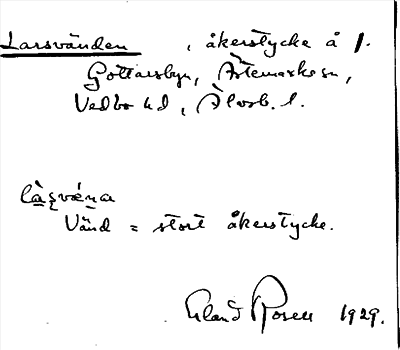 Larsvänden , åkerstycke å 1.
Gottarsbyn, Ärtemarks sn,
Vedbo hd, Älvsb. l.
là̱s̨væ̀ṉa
Vänd = stort åkerstycke.
Erland Rosell 1929.